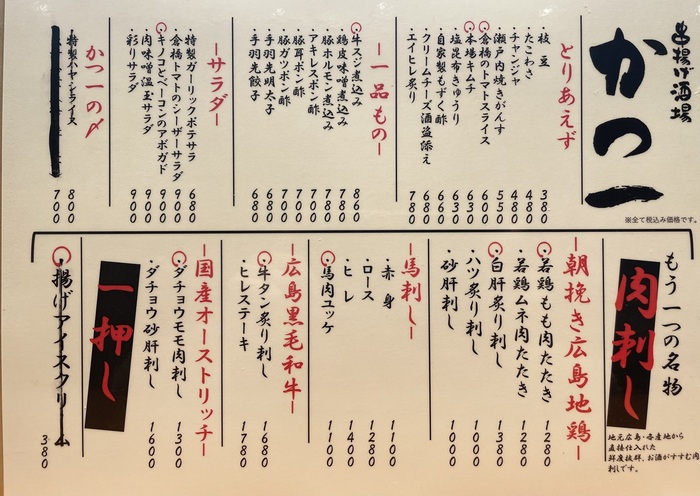 串揚げ酒場
かつ一
※全て税込み価格です。
とりあえず
・枝豆 380
・たこわさ 480
・チャンジャ 480
・瀬戸内焼きがんす 550
・倉橋のトマトスライス 600
・本場キムチ 630
・塩昆布きゅうり 630
・自家製もずく酢 660
・クリームチーズ酒盗添え 680
・エイヒレ炙り 780
ー一品ものー
・牛スジ煮込み 860
・鶏皮味噌煮込み 780
・豚ホルモン煮込み 780
・アキレスポン酢 700
・豚耳ポン酢 700
・豚ガツポン酢 700
・手羽先明太子 680
・手羽先餃子 680
ーサラダー
・特製ガーリックポテサラ 680
・倉橋トマトのシーザーサラダ 900
・キノコとベーコンのアボガド 900
・肉味噌温玉サラダ 900
・彩りサラダ 900
かつ一の〆
・特製ハヤシライス 800
700
もう一つの名物
肉刺し
地元広島・各産地から
直接仕入れた
鮮度抜群、お酒がすすむ肉
刺しです。
ー朝挽き広島地鶏ー
・若鶏もも肉たたき 1280
・若鶏ムネ肉たたき 1280
・白肝炙り刺し 1380
・ハツ炙り刺し 1000
・砂肝刺し 1000
ー馬刺しー
・赤身 1100
・ロース 1280
・ヒレ 1400
・馬肉ユッケ 1100
ー広島黒毛和牛ー
・牛タン炙り刺し 1680
・ヒレステーキ 1780
ー国産オーストリッチー
・ダチョウモモ肉刺し 1300
・ダチョウ砂肝刺し 1600
一押し
・揚げアイスクリーム 380